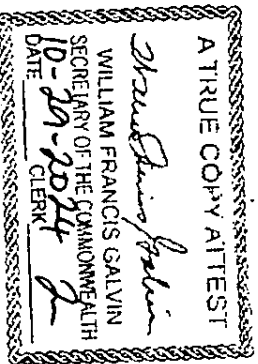 A TRUE COPY ATTEST
William Francis Galvin
WILLIAM FRANCIS GALVIN
SECRETARY OF THE COMMONWEALTH
DATE 10-29-2024 CLERK